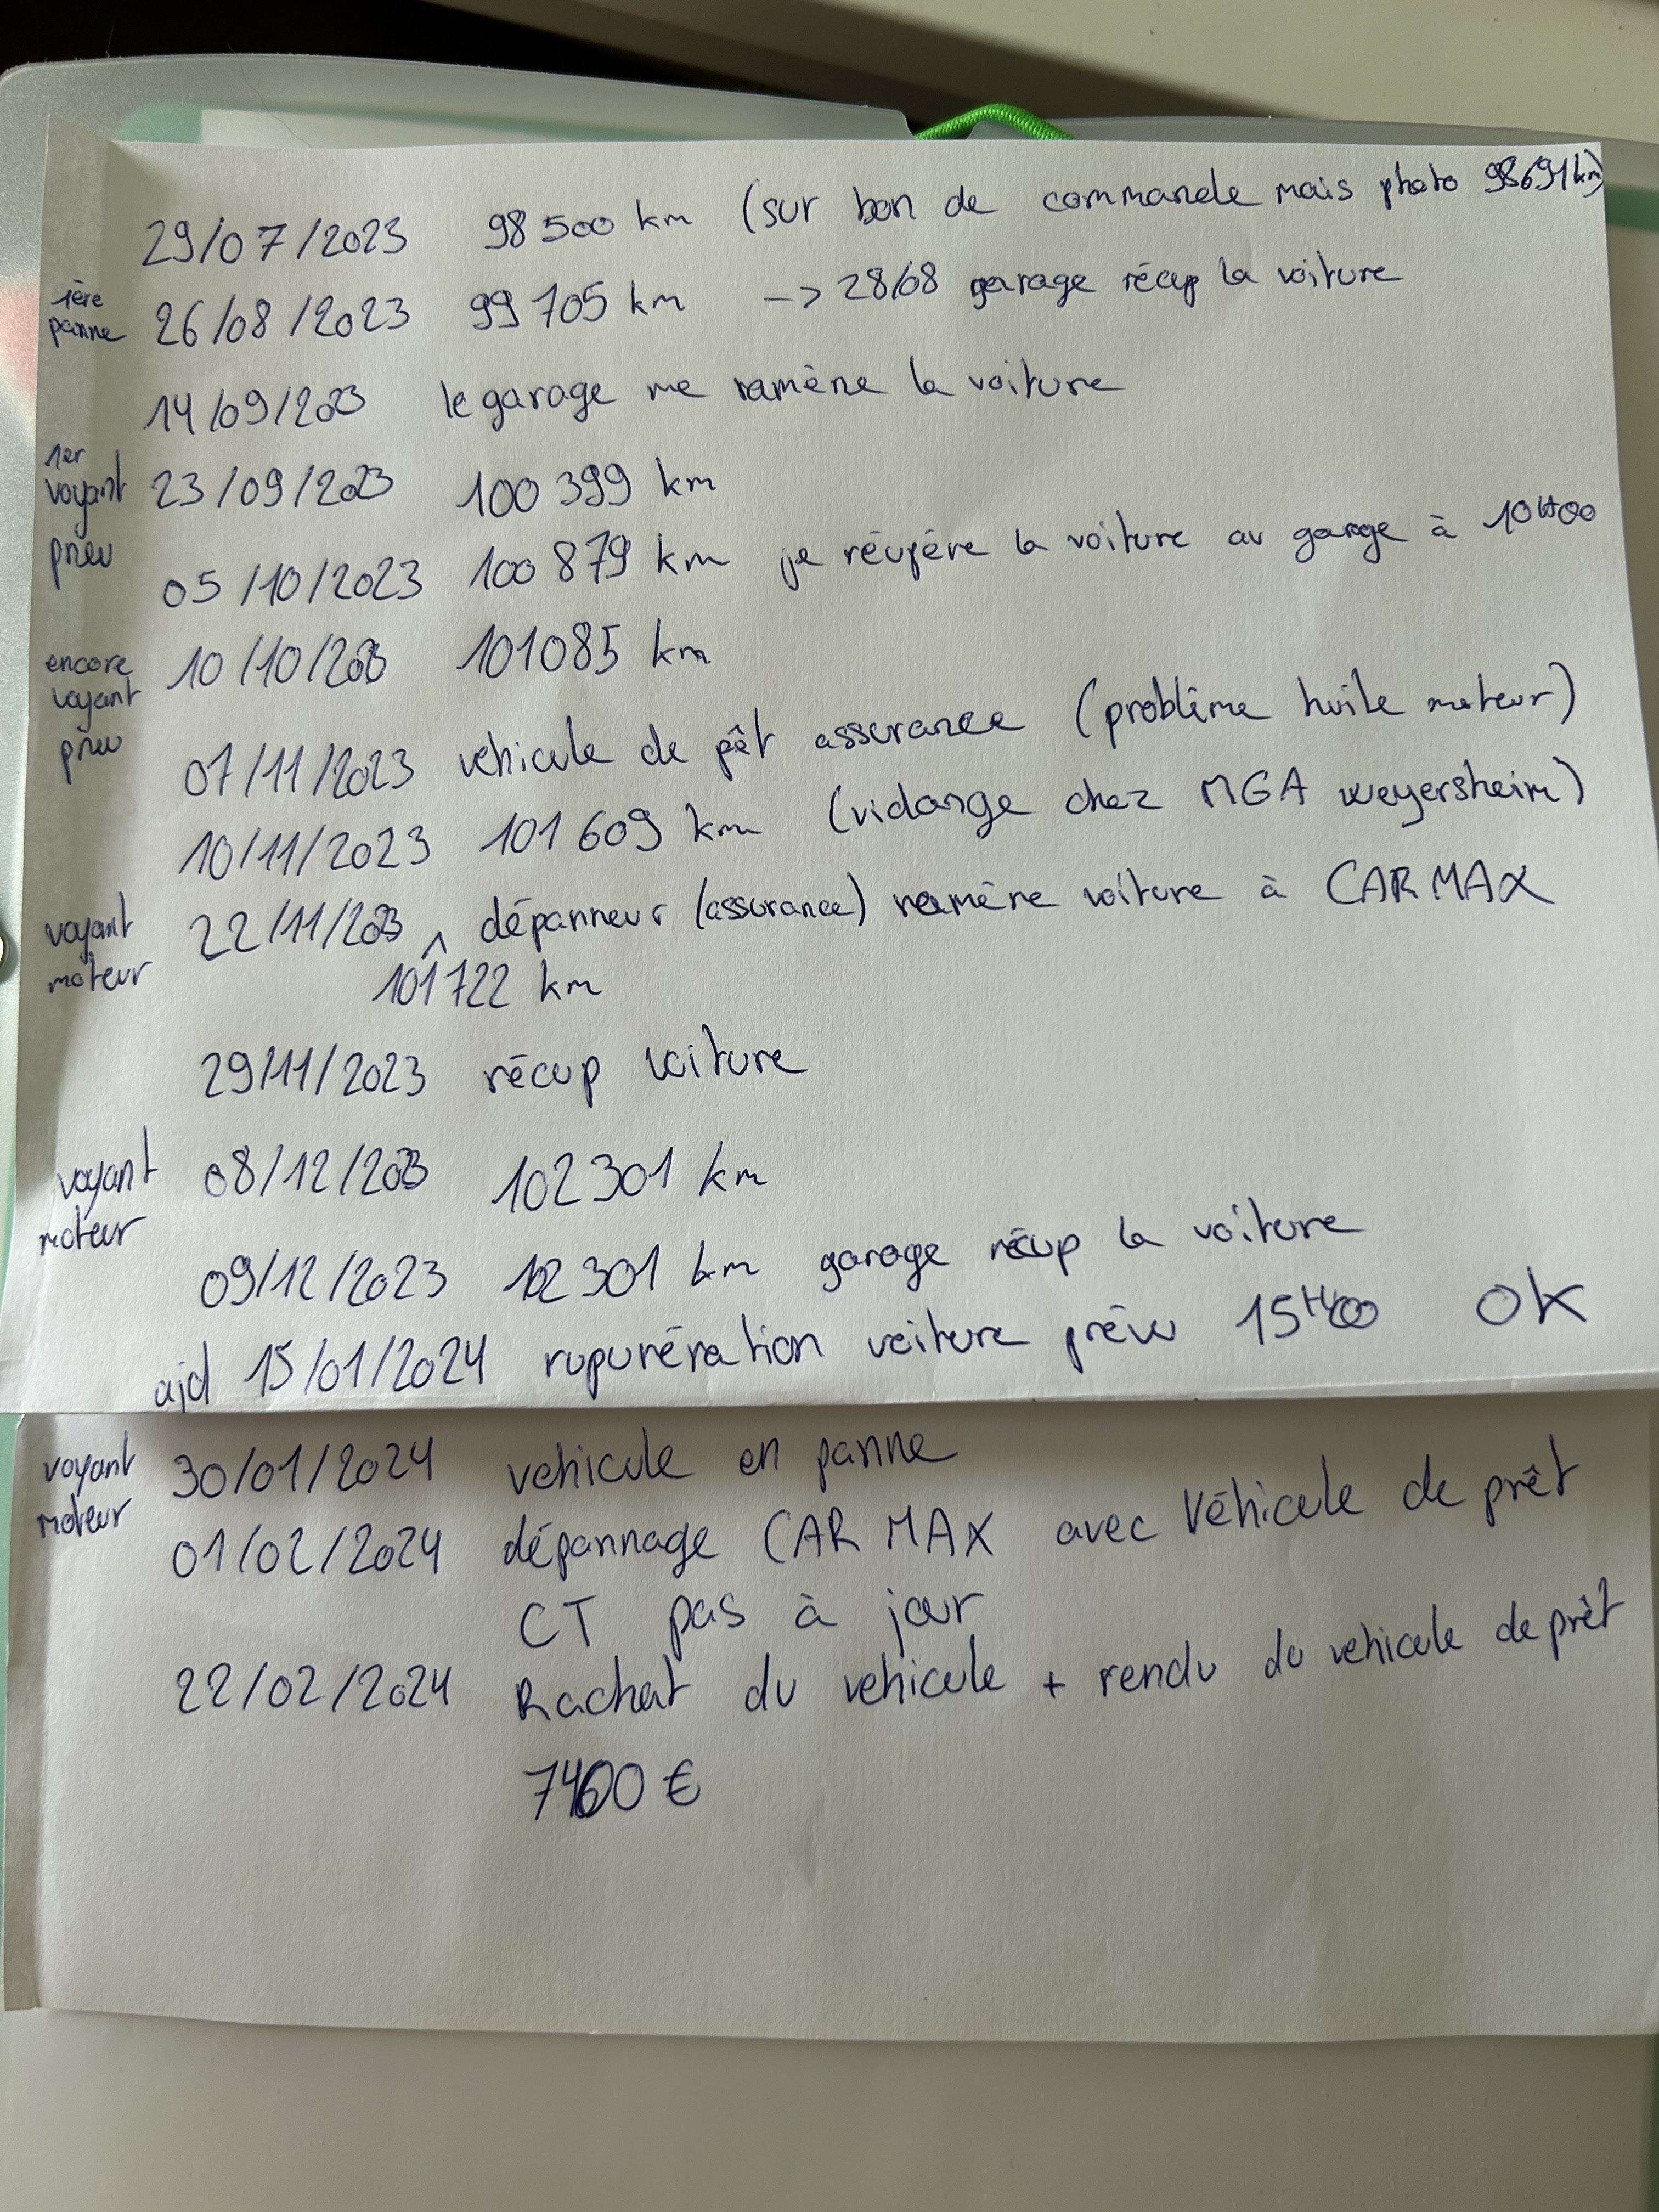 29/07/2023 98 500 km (sur bon de commande mais photo 98691 km)
1ère panne 26/08/2023 99 705 km -> 28/08 garage récup la voiture
14/09/2023 le garage me ramène la voiture
1er voyant pneu 23/09/2023 100 399 km
05/10/2023 100 879 km je récupère la voiture au garage à 10H00
encore voyant pneu 10/10/2023 101085 km
07/11/2023 vehicule de pêt assurance (problème huile moteur)
10/11/2023 101 609 km (vidange chez MGA weyersheim)
voyant moteur 22/11/2023 ^ dépanneur (assurance) ramène voiture à CAR MAX
101722 km
29/11/2023 récup voiture
voyant moteur 08/12/2023 102301 km
09/12/2023 102 301 km garage récup la voiture
ajd 15/01/2024 rupurération voiture prévu 15H00 OK
voyant moteur 30/01/2024 vehicule en panne
01/02/2024 dépannage CAR MAX avec Véhicule de prêt
CT pas à jour
22/02/2024 Rachat du vehicule + rendu du vehicule de prêt
€